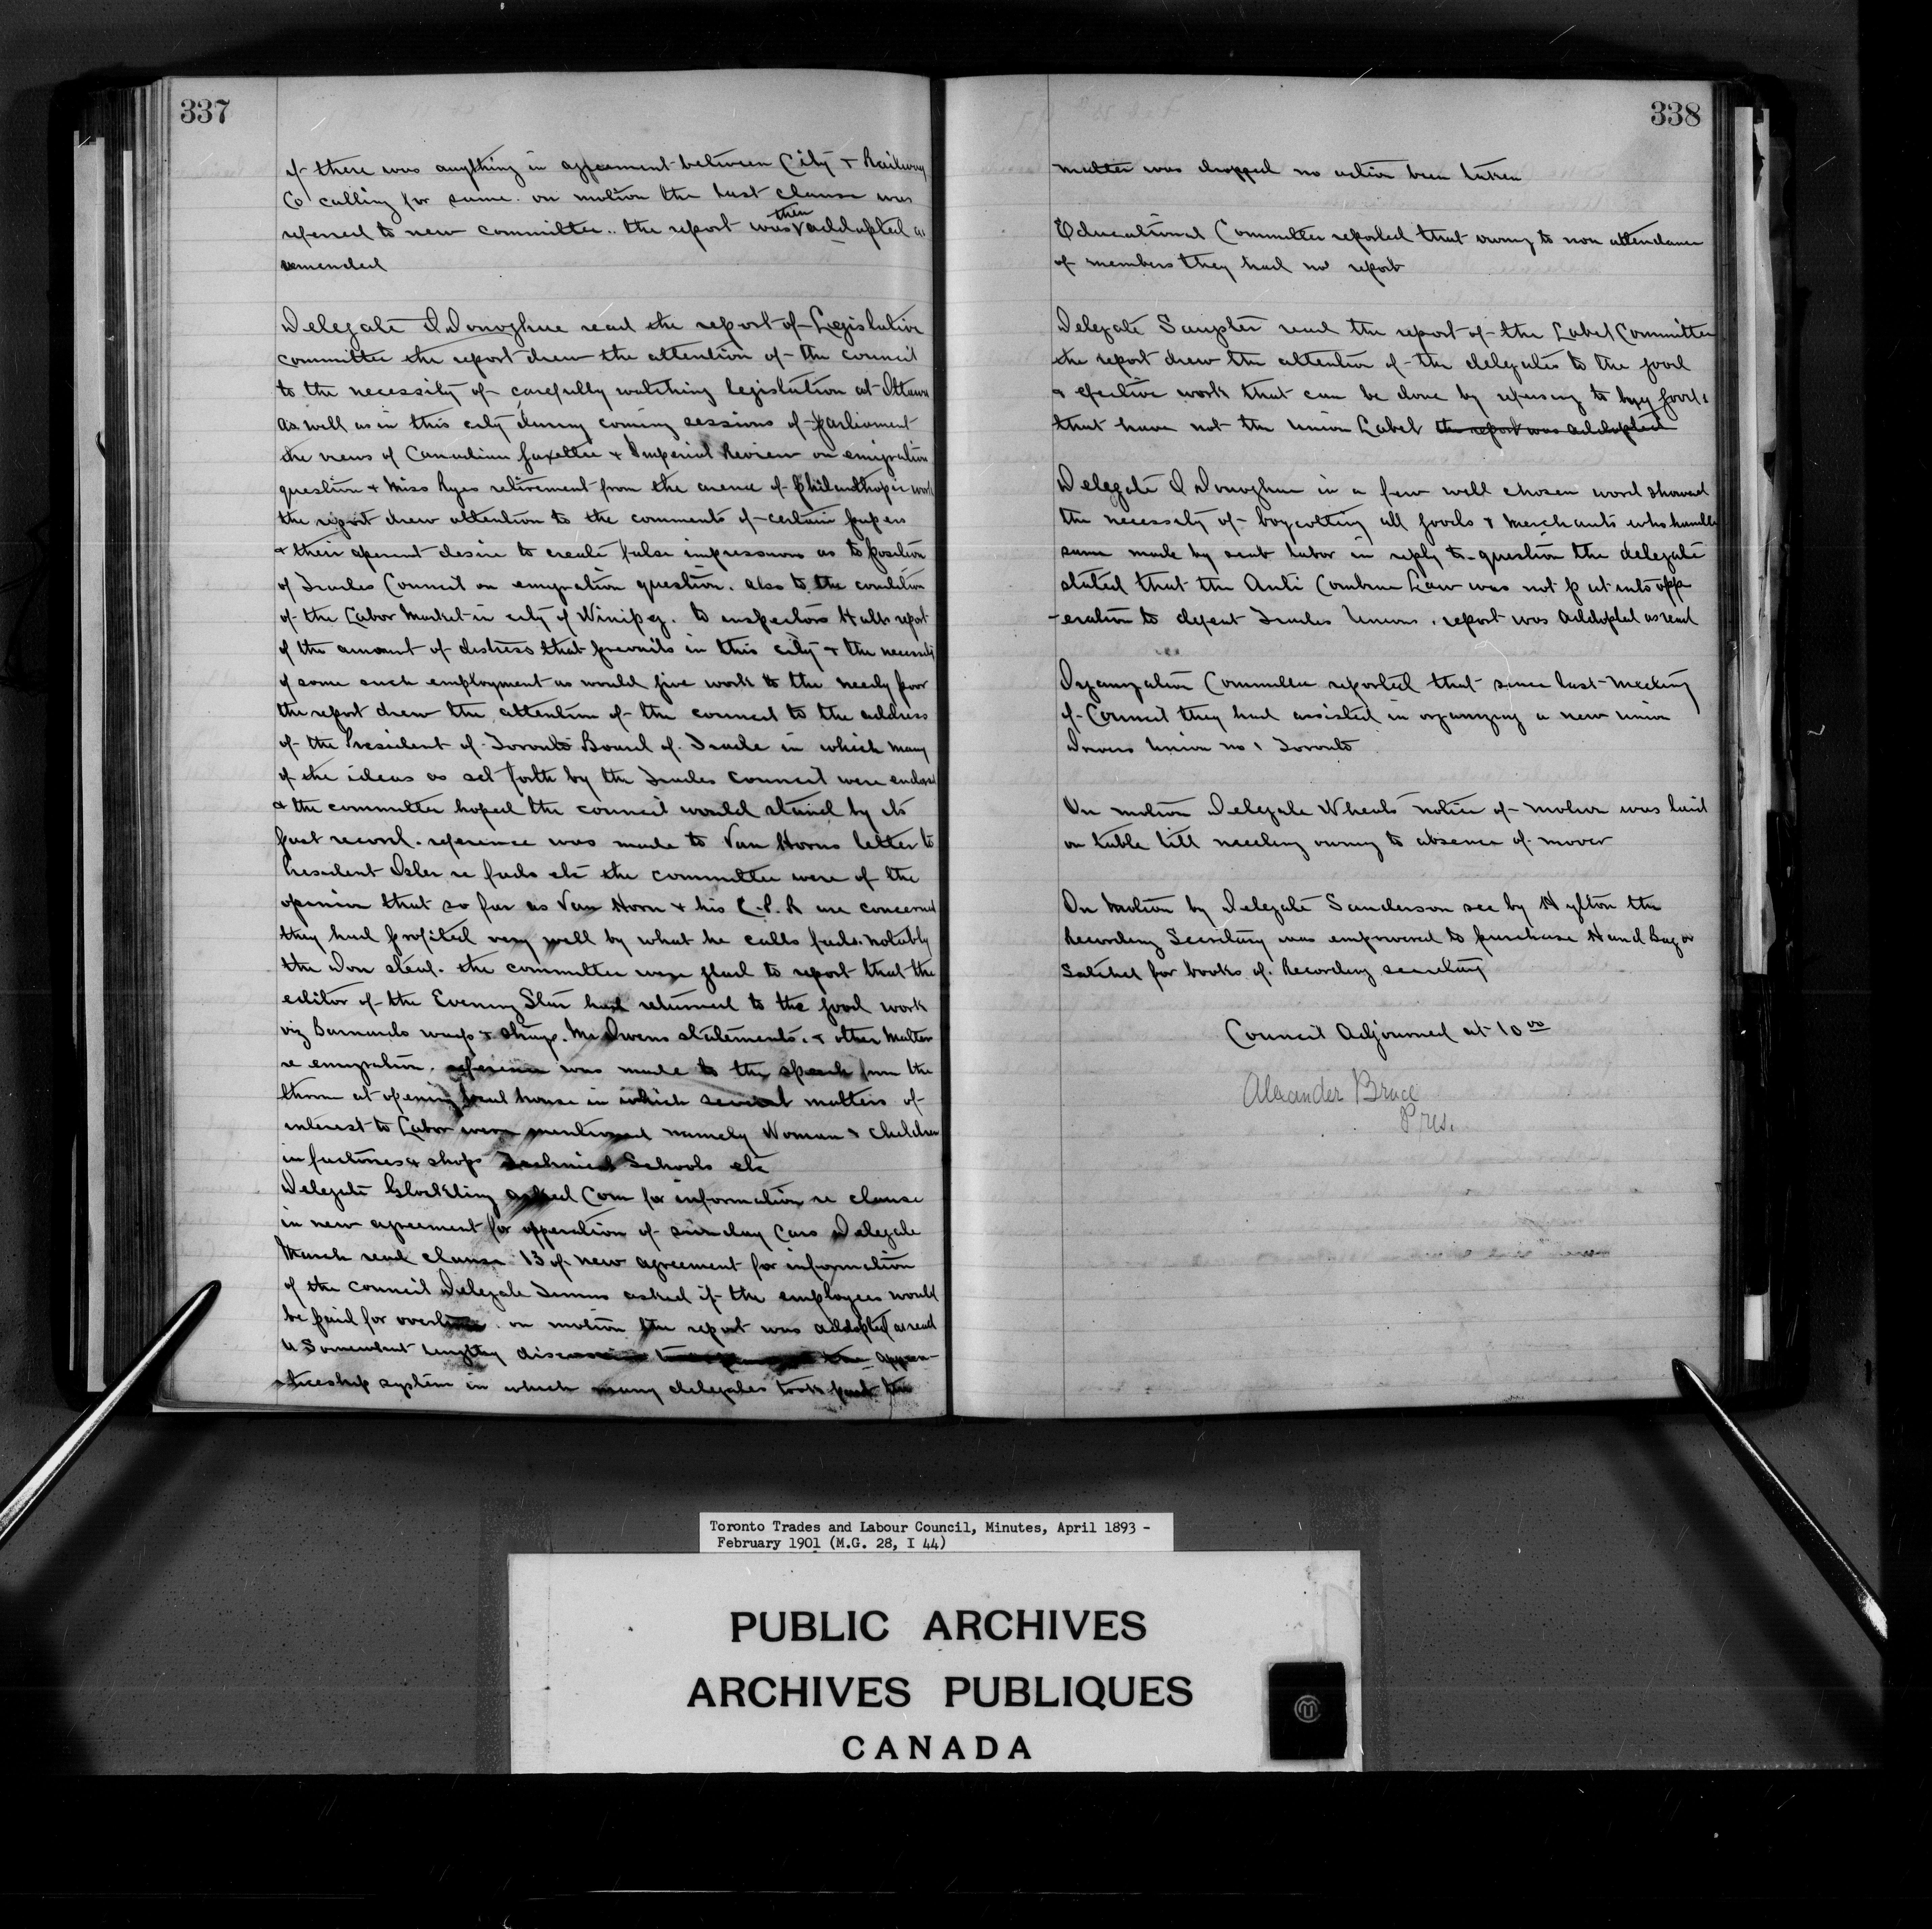 337
if there was anything in agreement between City & Railway
Co calling for same. on motion the last clause was
referred to new committee.. the report was then addopted as
amended
Delegate O Donoghue read the report of Legislative
committee the report drew the attention of the council
to the necessity of carefully watching legislation at Ottawa
as well as in this city during coming sessions of parliment
the views of Canadian Gazettee & Imperial Review on emigration
question & Miss Ryes retirement from the arena of Philanthropic work
the report drew attention to the comments of certain papers
& their aparent desire to create false impressions as to position
of Trades Council on emigration question. also to the condition
of the Labor Market in city of Winipeg. to inspectors Halls report
of the amount of distress that prevails in this city & the necessity
of some such employment as would give work to the needy poor
the report drew the attention of the council to the address
of the President of Toronto Board of Trade in which many
of the ideas as set forth by the Trades council were endorsed
& the committee hoped the council would stand by its
past record. reference was made to Van Horns letter to
President Osler re fads etc the committee were of the
opinion that so far as Van Horn & his C.P.R are concerned
they had profited very well by what he calls fads. notably
the Don steal. the committee were glad to report that the
editor of the Evening Star had returned to the good work
viz Barnardo waifs & strays. Mr Owens statements. & other matter
re emigration. reference was made to the speech from the
throne at opening local house in which several matters of
interest to Labor were mentioned namely Woman & children
in factories & shops Technical Schools etc
Delegate Glockling asked Com for information re clause
in new agreement for opperation of sunday Cars Delegate
March read clause 13 of new agreement for information
of the council Delegate Timms asked if the employees would
be paid for overtime. on motion the report was addopted as read
a Somewhat lengthy discussion appren-
-ticeship system in which many delegates took part the
338
matter was dropped no action been taken
Educational Committee reported that owing to non attendance
of members they had no report
Delegate Sangster read the report of the Label Committee
the report drew the attention of the delegates to the good
& efective work that can be done by refusing to buy goods
that have not the Union Label the report was addopted
Delegate O Donoghue in a few well chosen word showed
the necessity of boycotting all goods & merchants who handle
same made by scab Labor in reply to question the delegate
stated that the Anti Combine Law was not put into opp
-eration to defeat Trades Unions. report was addopted as read
Organization Committee reported that since last meeting
of Council they had assisted in organizing a new union
Drovers Union no 1 Toronto
On motion Delegate Wheals notice of motion was laid
on table till meeting owing to absence of mover
On motion by Delegate Sanderson sec by Hylton the
Recording Secretary was empowered to purchase Hand Bag or
Satchel for books of Recording secretary
Council Adjourned at 10 00
Alexander Bruce
Pres.
Toronto Trades and Labour Council, Minutes, April 1893 -
February 1901 (M.G. 28, I 44)
PUBLIC ARCHIVES
ARCHIVES PUBLIQUES
CANADA